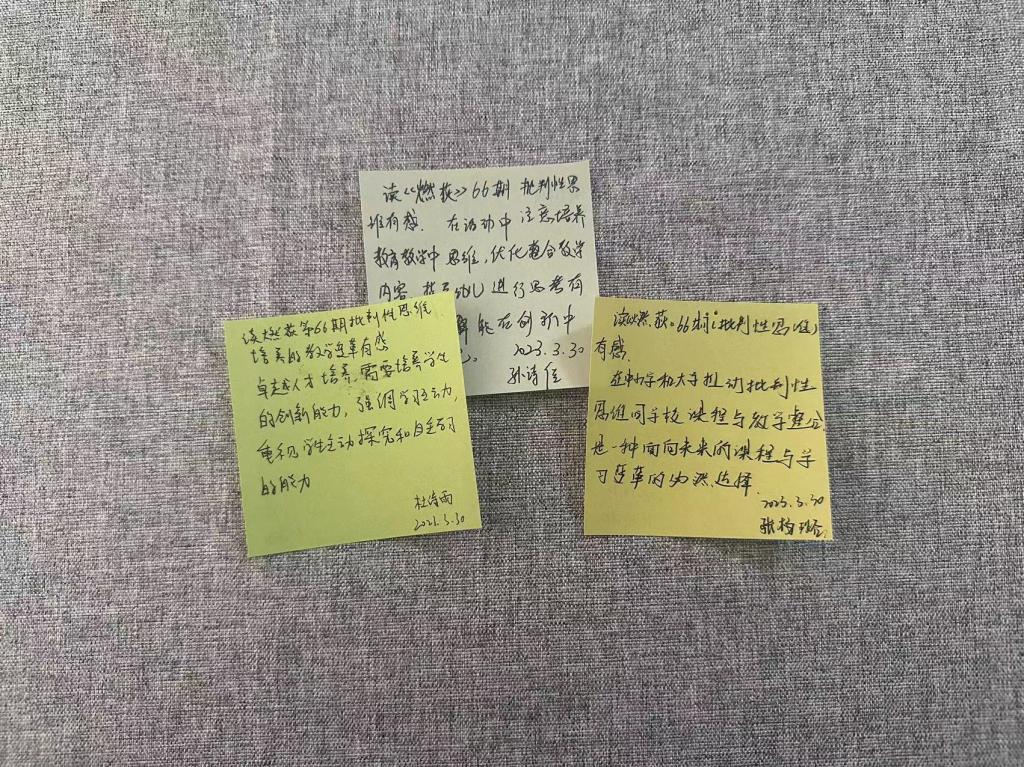 读《燃荻》66期 批判性思
维有感. 在活动中 注意培养
教育教学中 思维, 优化整合教学
内容 幼儿 进行思考有
能在创新中
2023.3.30
孙诗佳
读燃荻第66期批判性思维
培养的教学变革有感
卓越人才培养, 需要培养学生
的创新能力, 强调学习主动力,
重视学生主动探究和自主学习
的能力
杜诗雨
2023.3.30
读燃荻·66期"批判性思维"
有感.
在中小学和大学推动批判性
思维同学校课程与教学整合
是一种面向未来的课程与学
习变革的必然选择.
2023.3.30
张